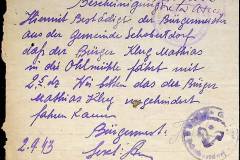 Bescheinigung
Hiermit Bestädigt der Bürgermeister
aus der Gemeinde Schobertdorf
daß der Bürger Klug Mathias
in die Oelmühle fährt mit
2,5 dz Wir bitten das der Bürger
Mathias Klug ungehindert
fahren kann
Bürgermst.
2.9.43